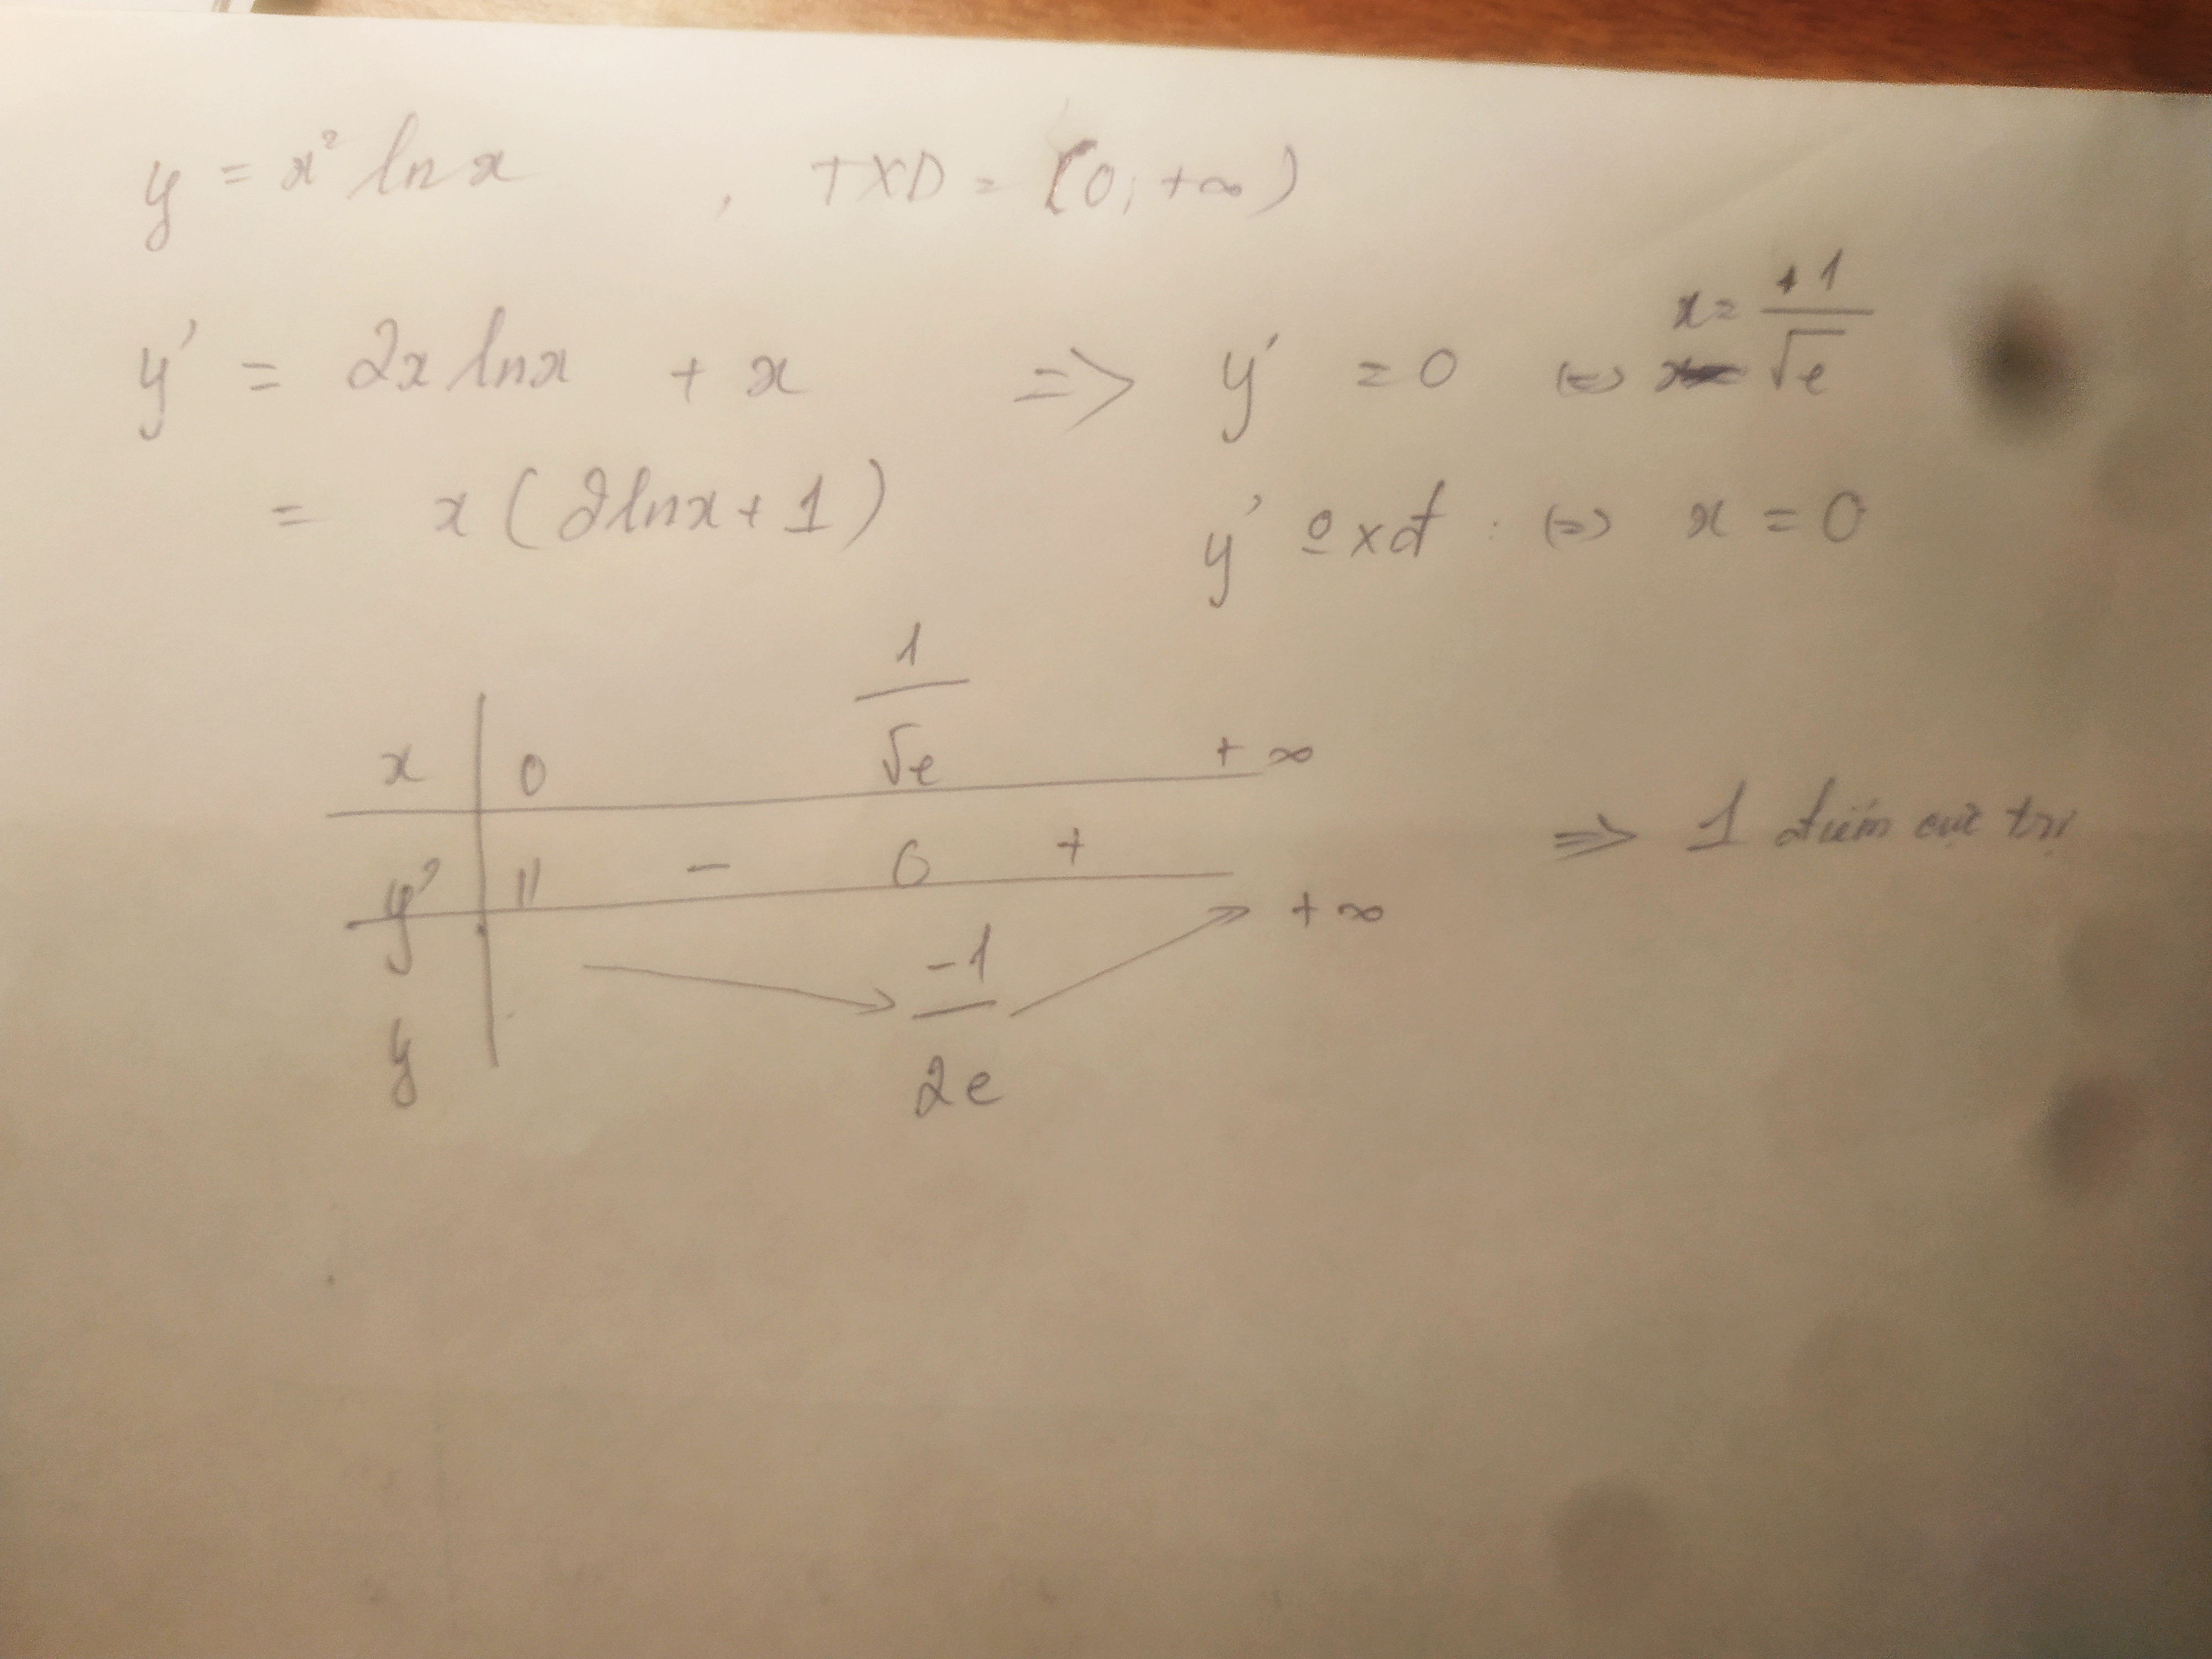 y = x² ln x , TXD = (0; +∞)
y' = 2x lnx + x => y' = 0 <=> x = +1/√e
= x (2lnx + 1) y' o xđ : <=> x = 0
x 0 1/√e + ∞
y' || - 0 + => 1 điểm cực trị
y -1/2e + ∞